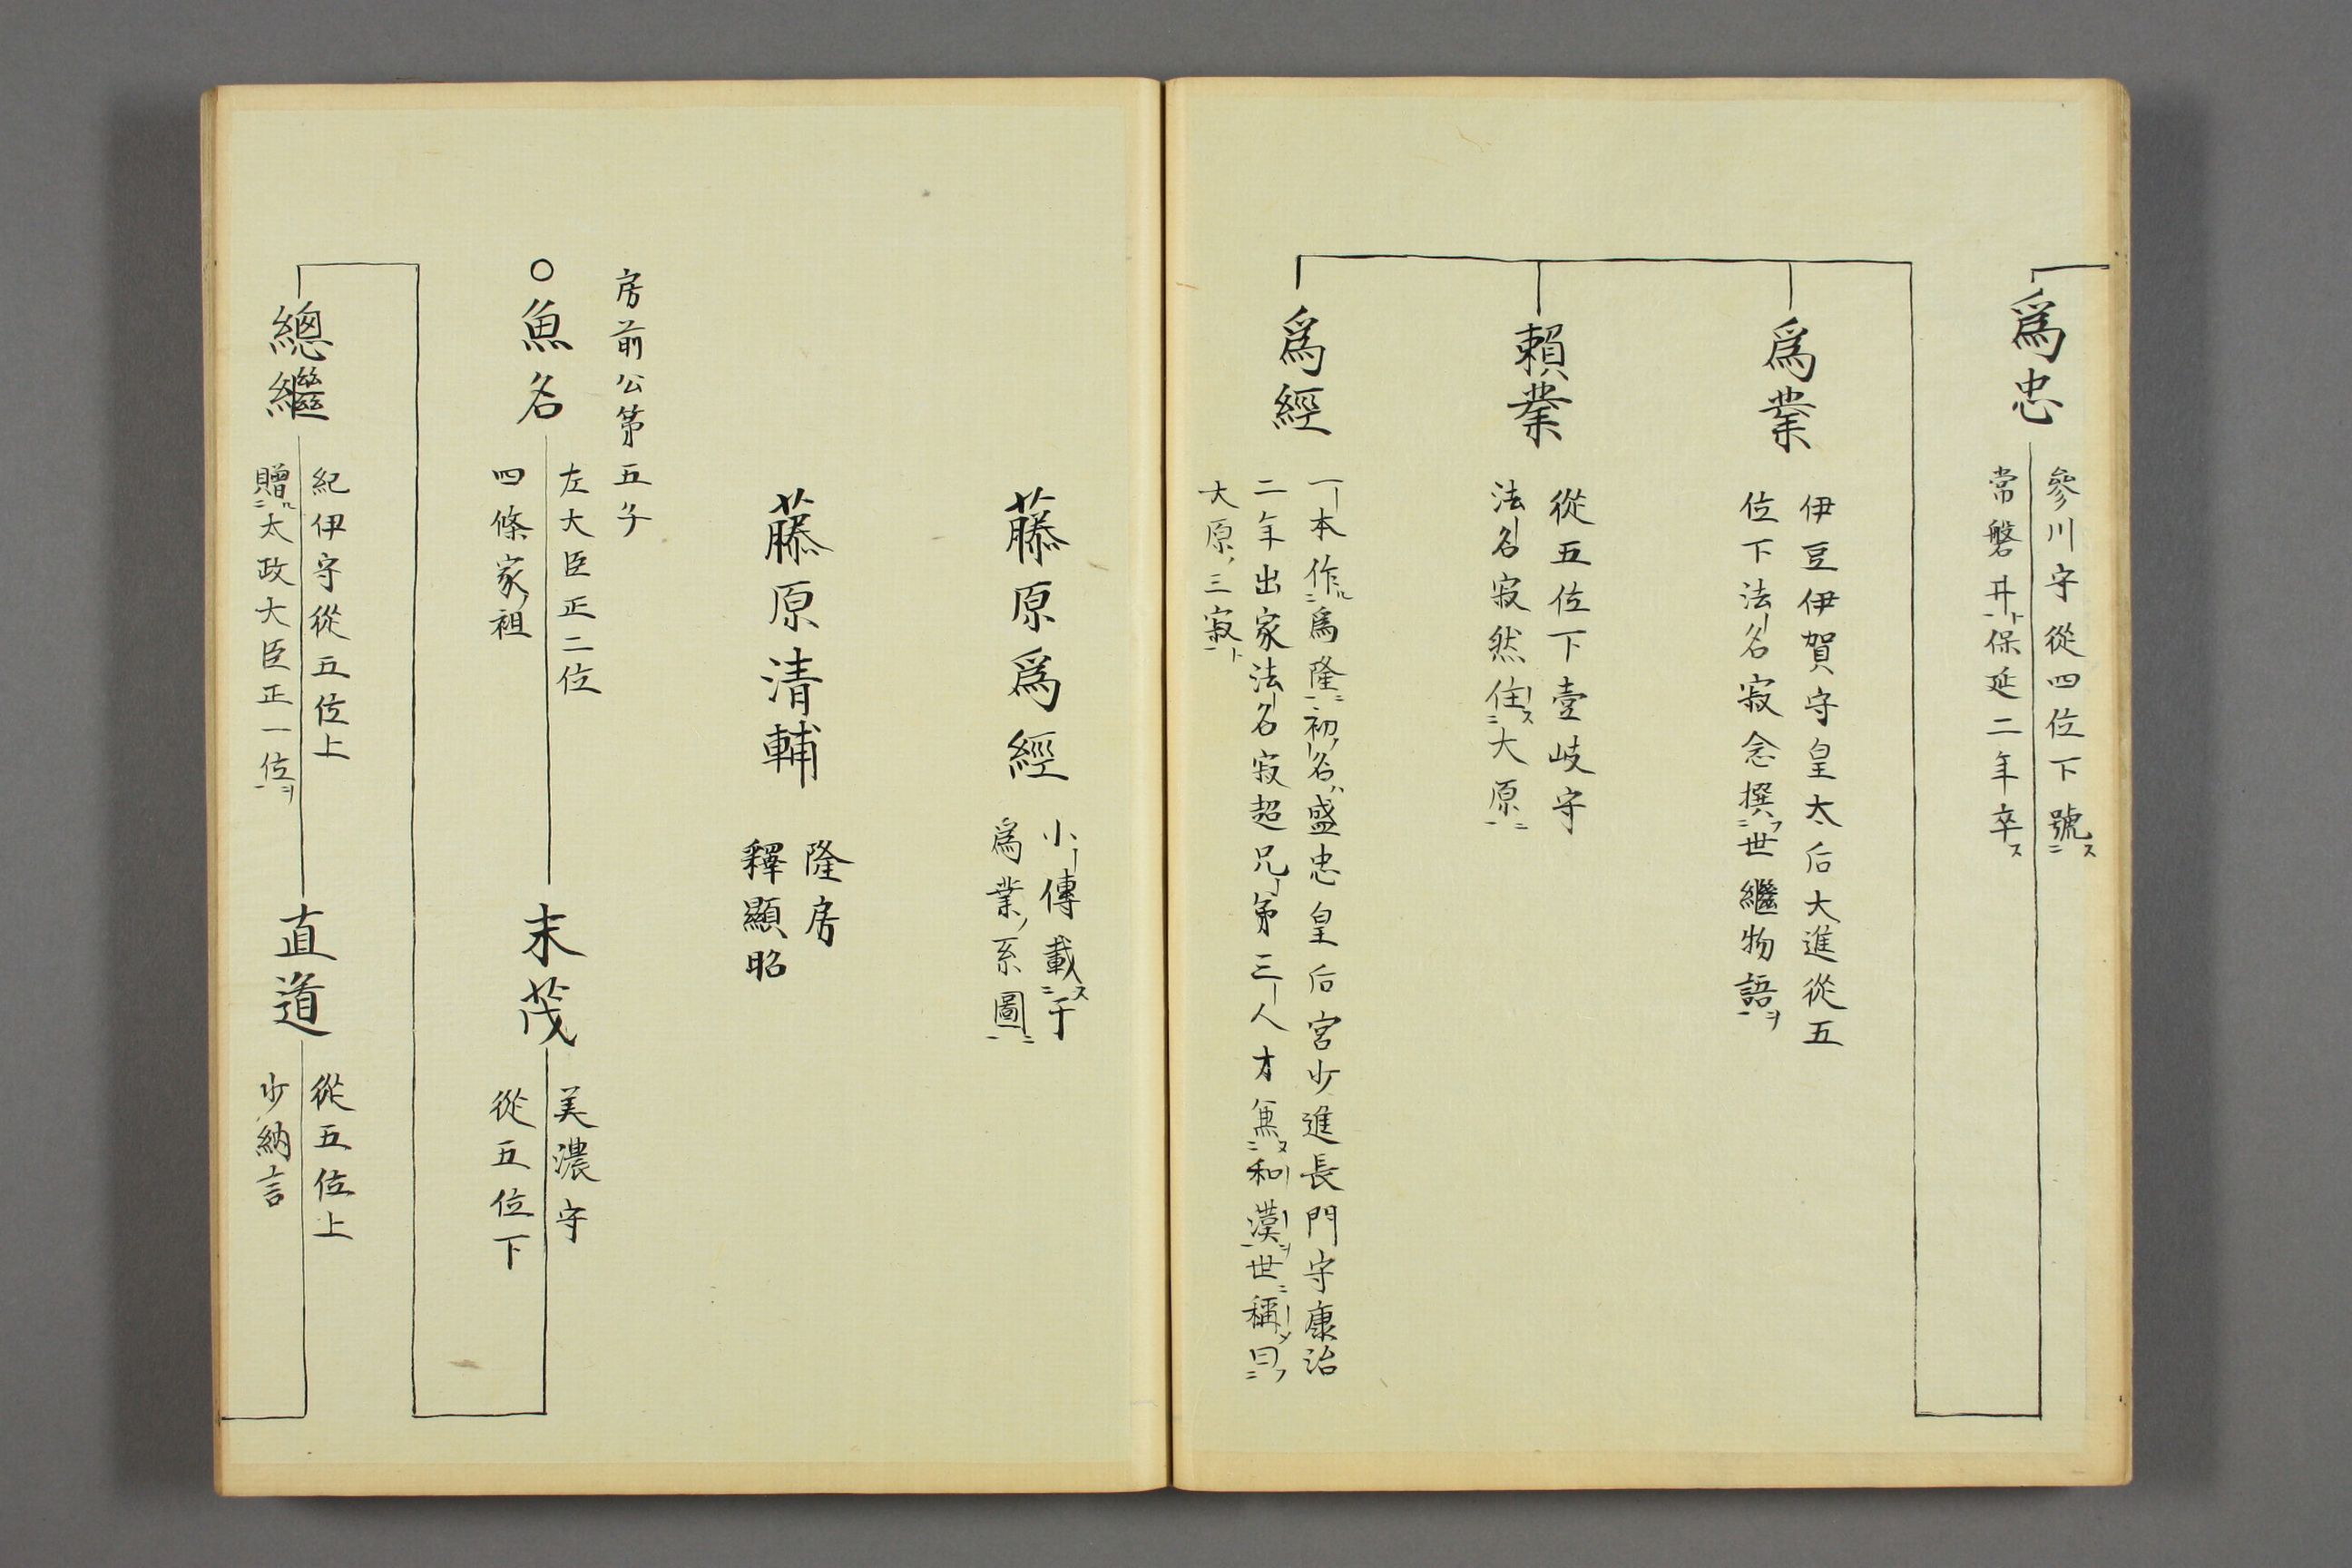 爲忠
參川守從四位下號ス二
常磐丼ト一保延二年卒ス
爲業
伊豆伊賀守皇太后大進從五
位下法名寂念撰フ二世繼物語ヲ一
賴業
從五位下壹岐守
法名寂然住ス二大原ニ一
爲經
一本作ル二爲隆ニ一初ノ名ハ盛忠皇后宮少進長門守康治
二年出家法名寂超兄弟三人才兼ヌ二和漢ヲ一世ニ稱メ曰フ二
大原ノ三寂ト一
藤原爲經
小傳載ス二于
爲業ノ系圖ニ一
藤原清輔
隆房
釋顯昭
房前公第五子
○魚名
左大臣正二位
四條家ノ祖
末茂
美濃守
從五位下
總繼
紀伊守從五位上
贈ル二太政大臣正一位ヲ一
直道
從五位上
少納言